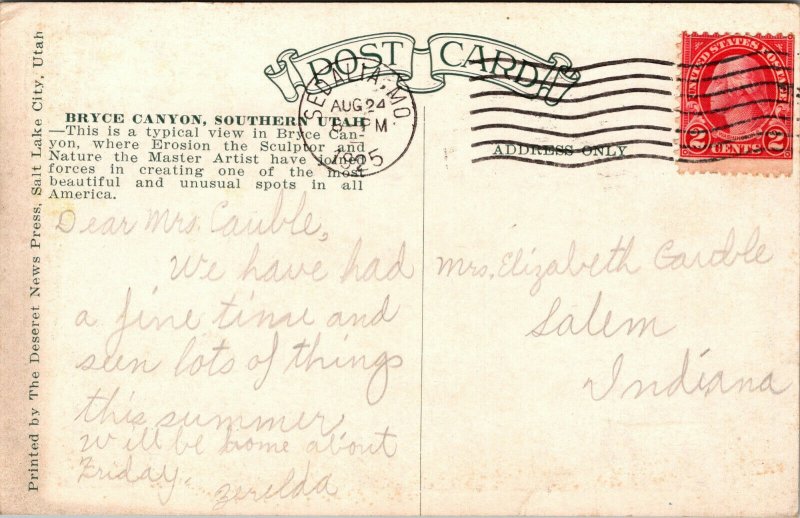 POST CARD
SEDALIA, MO.
AUG 24
PM
1925
UNITED STATES POSTAGE
2 CENTS 2
ADDRESS ONLY
BRYCE CANYON, SOUTHERN UTAH
—This is a typical view in Bryce Can-
yon, where Erosion the Sculptor and
Nature the Master Artist have joined
forces in creating one of the most
beautiful and unusual spots in all
America.
Printed by The Deseret News Press, Salt Lake City, Utah
Dear Mrs. Cauble,
We have had
a fine time and
seen lots of things
this summer,
will be home about
Friday.
Zerelda
Mrs. Elizabeth Cauble
Salem
Indiana